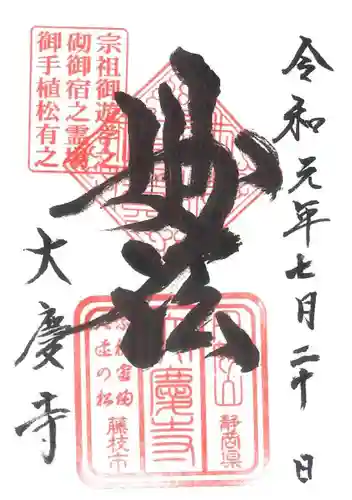 令和元年七月二十日
宗祖御遊学之
砌御宿之霊場
御手植松有之
妙法
大慶寺
大慶寺
静岡県
藤枝市